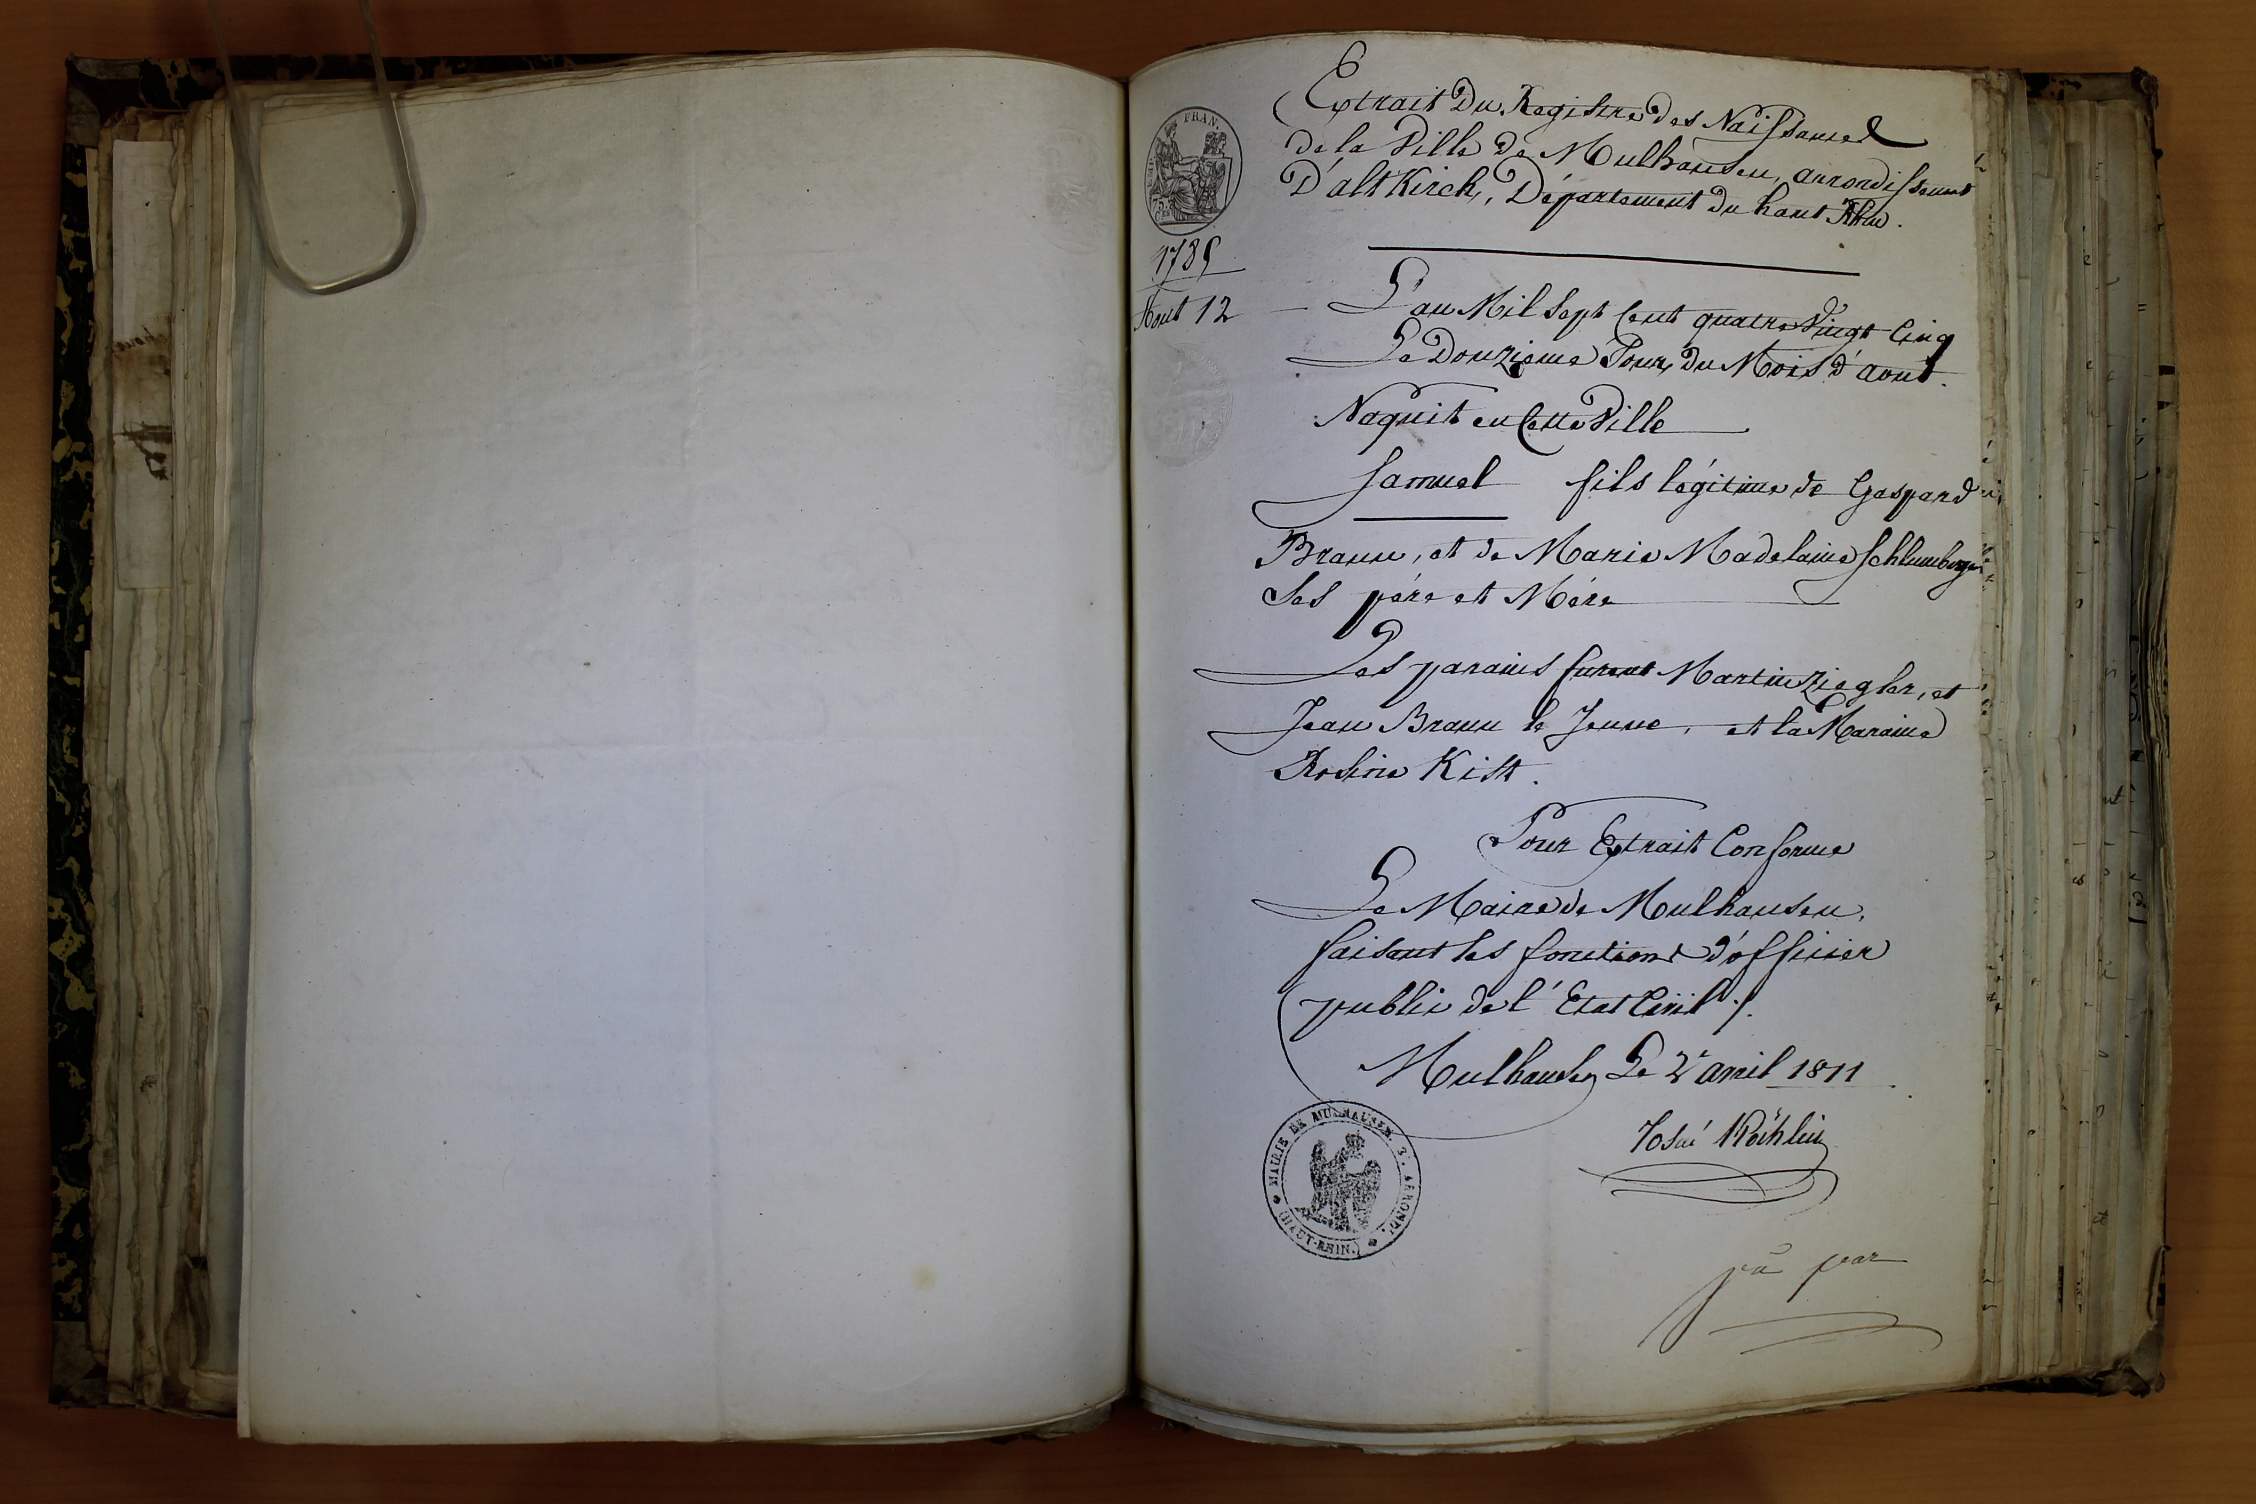 Extrait Du Registre des Naissances
de la Ville de Mulhausen, arrondissement
D'altKirch, Département du haut Rhin.
FRAN.
75.
1785
Aout 12
L'an Mil Sept Cent quatre Vingt Cinq
Le Douzieme Jour du Mois d'aout.
Naquit en Cette Ville
Samuel fils légitime de Gaspard
Braun, et de Marie Madelaine Schlumberger
Ses pére et Mére
Les parains furent Martin Ziegler, et
Jean Braun le Jeune, et la Maraine
Rosine Kist.
Pour Extrait Conforme
Le Maire de Mulhausen,
faisant les fonctions d'officier
public de l'Etat Civil
Mulhausen Le 2 avril 1811
Josué Köchlin
MAIRIE DE MULHAUSEN. 3e. ARRONDt.
(HAUT-RHIN.)
par